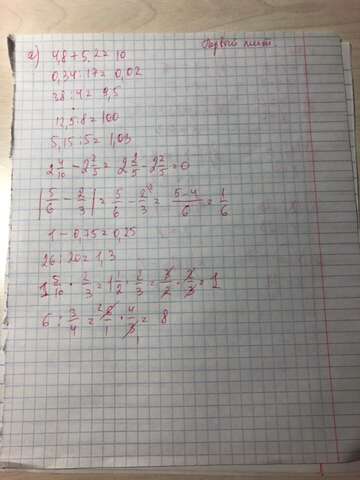 Первый лист
а) 4,8 + 5,2 = 10
0,34 : 17 = 0,02
38 : 4 = 9,5
12,5 · 8 = 100
5,15 : 5 = 1,03
2 4/10 - 2 2/5 = 2 2/5 - 2 2/5 = 0
|5/6 - 2/3| = 5/6 - 2/3 = 5-4/6 = 1/6
1 - 0,75 = 0,25
26 : 20 = 1,3
1 5/10 · 2/3 = 1 1/2 · 2/3 = 3/2 · 2/3 = 1
6 : 3/4 = 6/1 · 4/3 = 8